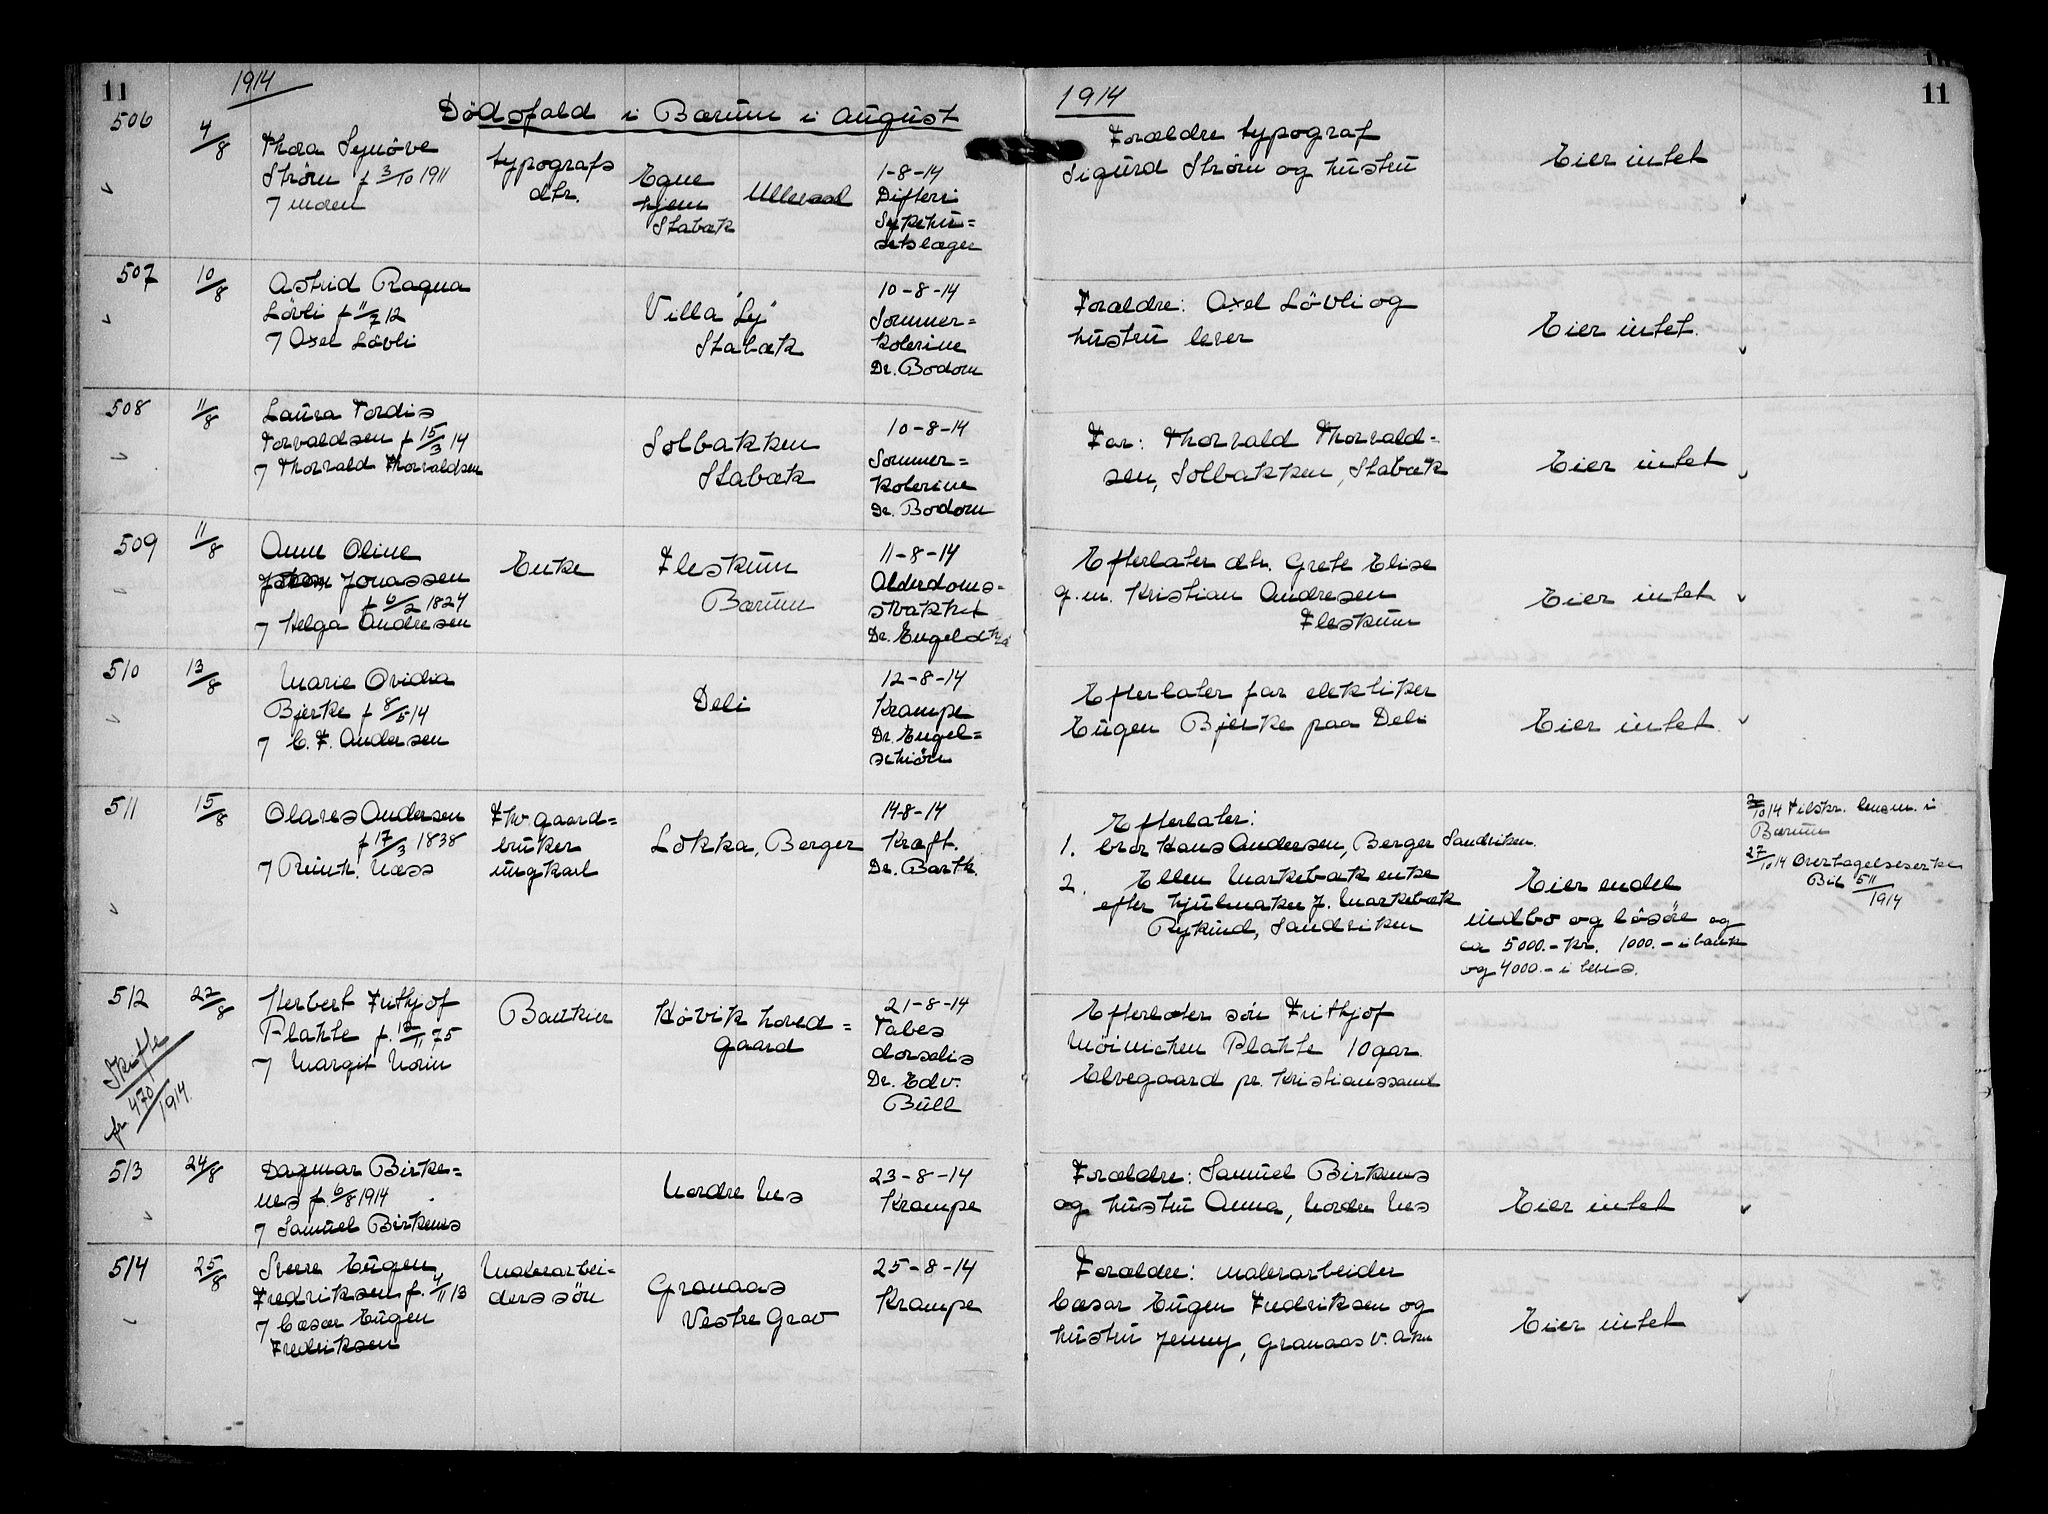 11
1914
Dödsfald i Bærum i August
1914
11
506
4/8
Thora Synöve
Ström f 3/10 1911
7 moren
typografs
dtr.
Egne
hjem
Stabæk
Ullevaal
1-8-14
Difteri
Sykehu=
sets læger
Forældre typograf
Sigurd Ström og hustru
Eier intet
507
10/8
Astrid Ragna
Lövli f 11/7 12
7 Axel Lövli
Villa "Ly"
Stabæk
10-8-14
Sommer=
kolerine
Dr. Bodom
Forældre: Axel Lövli og
hustru lever
Eier intet.
508
11/8
Laura Tordis
Torvaldsen f 15/3 14
7 Thorvald Thorvaldsen
Solbakken
Stabæk
10-8-14
Sommer=
kolerine
Dr. Bodom
Far: Thorvald Thorvald=
sen, Solbakken, Stabæk
Eier intet
509
11/8
Anne Oline
Jonassen
f 6/2 1824
7 Helga Andresen
Enke
Fleskum
Bærum
11-8-14
Alderdoms-
svakhet
Efterlater dtr. Grete Elise
g.m. Kristian Andresen
Fleskum
Eier intet
510
13/8
Marie Ovidia
Bjerke f 8/5 14
7 C. F. Andersen
Deli
12-8-14
Krampe
Dr. Engel=
schiön
Efterlater far elektiker
Eugen Bjerke paa Deli
Eier intet.
511
15/8
Olaves Andersen
f 17/3 1838
7 Reinh. Næss
Fhv. gaard=
bruker
ungkarl
Lökka, Berger
14-8-14
Kræft.
Dr. Barth.
Efterlater:
1. bror Hans Andersen, Berger Sandviken.
2. Ellen Markebæk enke
efter hjulmaker J. Markebæk
Rykind, Sandviken
Eier endel
indbo og lösöre og
ca 5000.- kr. 1000.- i bank
og 4000.- i
/10 14 Tilskr. lensm. i
Bærum
27/10 14 Overtagelseserkl.
Bil 511/1914
512
22/8
Skifte
fr. 470/1914.
Herbert Frithjof
Plahte f. 12/11 75
7 Margit Morin
Bankier
Hövik hoved=
gaard
21-8-14
Tabes
dorsalis
Dr. Edv.
Bull
Efterlater sön Frithjof
Möinichen Plahte 10 aar.
Elvegaard pr. Kristianssand
513
24/8
Dagmar Birke=
nes f. 6/8 1914
7 Samuel Birkenes
Nordre Nes
23-8-14
Krampe
Forældre: Samuel Birkenes
og hustru Anna, Nordre Nes
Eier intet
514
25/8
Sverre Eugen
Fredriksen f. 4/11 13
7 Cæsar Eugen
Fredriksen
Malerarbei=
ders sön
Granaas
Vestre Grav
25-8-14
Krampe
Forældre: malerarbeider
Cæsar Eugen Fredriksen og
hustru Jenny, Granaas V. Aker
Eier intet